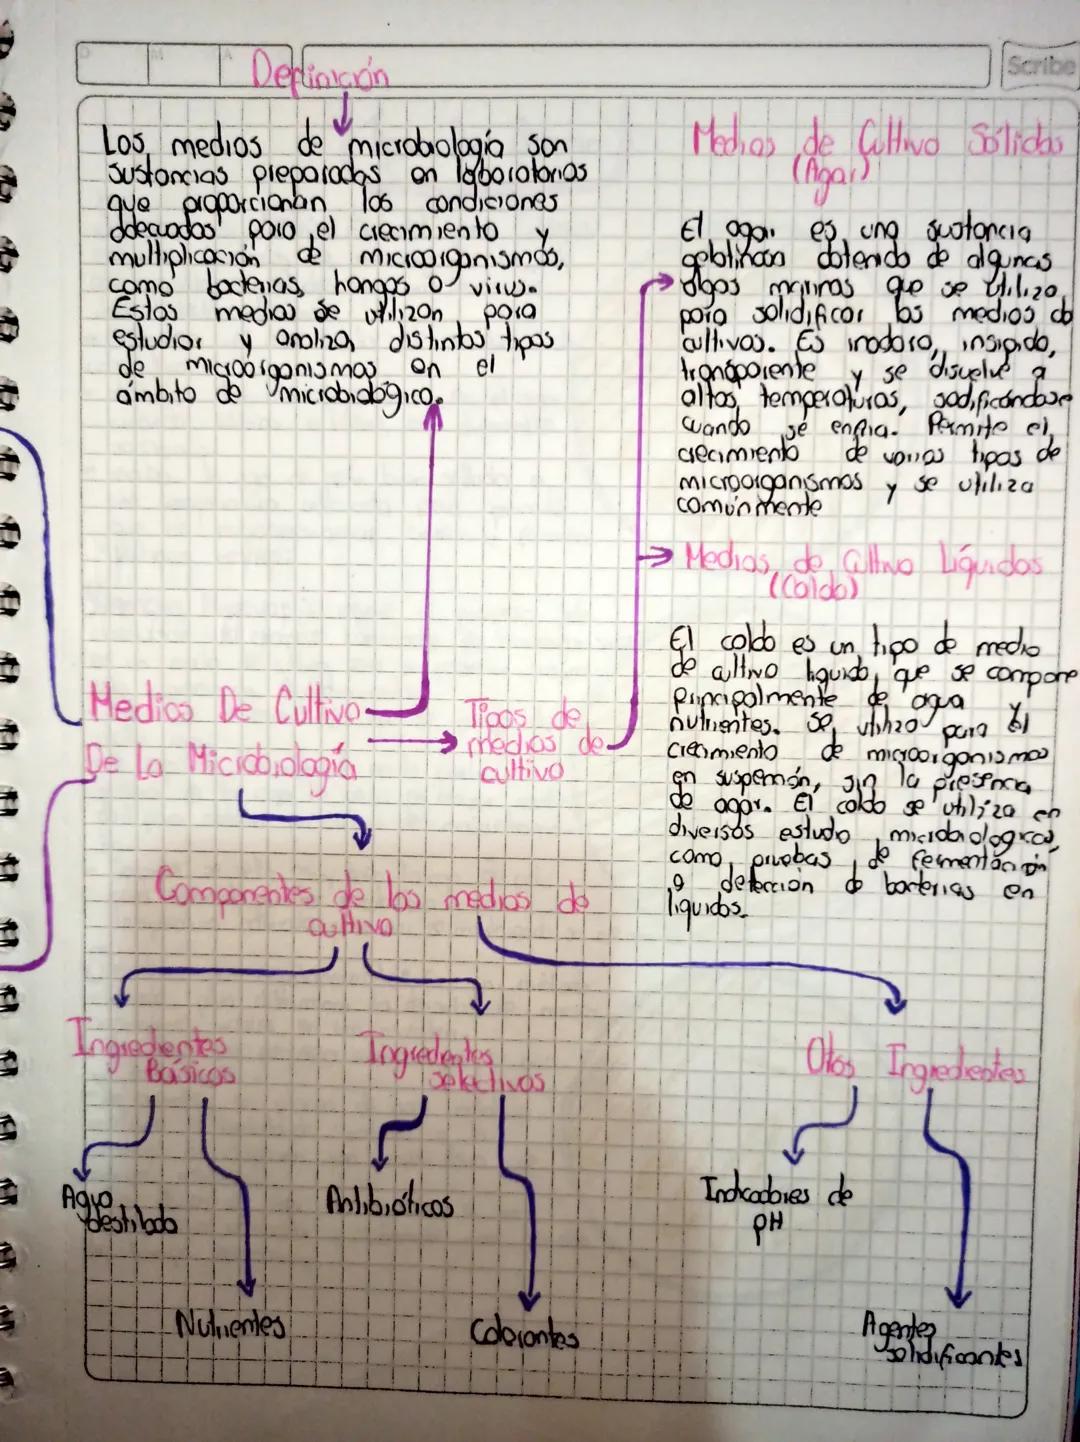 Scribe
Definición
Los medios de microbiología son
sustancias preparadas en laboratorios
que proporcionan las condiciones
adecuadas para el crecimiento y
multiplicación de microorganismos,
como bacterias, hongos o virus.
Estos medios se utilizan para
estudiar y analizar distintos tipos
de microorganismos en el
ámbito de microbiológico.
Medios de Cultivo Sólidos
(Agar)
El agar es una sustancia
gelatinosa obtenida de algunas
algas marinas que se utiliza
para solidificar los medios de
cultivos. Es inodoro, insípido,
transparente y se disuelve a
altas temperaturas, sodificándose
cuando se enfria. Permite el
crecimiento de varios tipos de
microorganismos y se utiliza
comúnmente
Medios de Cultivo Líquidos
(Caldo)
El caldo es un tipo de medio
de cultivo líquido, que se compone
principalmente de agua y
nutrientes. Se utiliza para el
crecimiento de microorganismos
en suspensión, sin la presencia
de agar. El caldo se utiliza en
diversos estudio microbiologicos,
como pruebas de fermentación
o detección de bacterias en
liquidos.
Medios De Cultivo
De La Microbiología
Tipos de
medios de
cultivo
Componentes de los medios de
cultivo
Ingredientes
Básicos
Ingredientes
Selectivos
Otros Ingredientes
Agua
destilada
Antibióticos
Indicadores de
pH
Nutrientes
Colorantes
Agentes
solidificantes